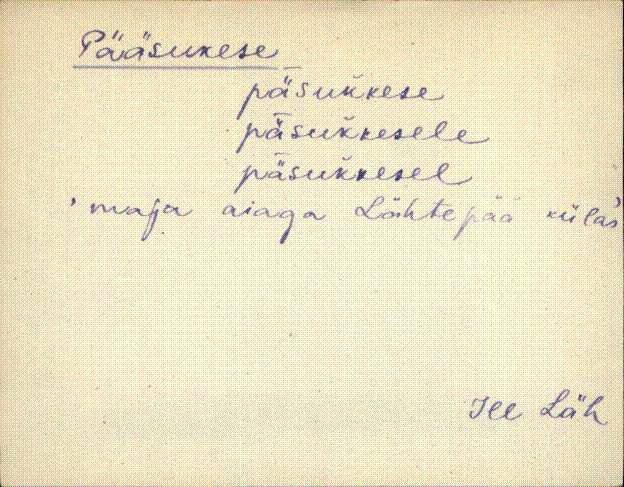 Pääsukese
pǟsuk̆kese
pǟsuk̆kesele
pǟsuk̆kesel
'maja aiaga Lähtepää külas'
Jee Läh